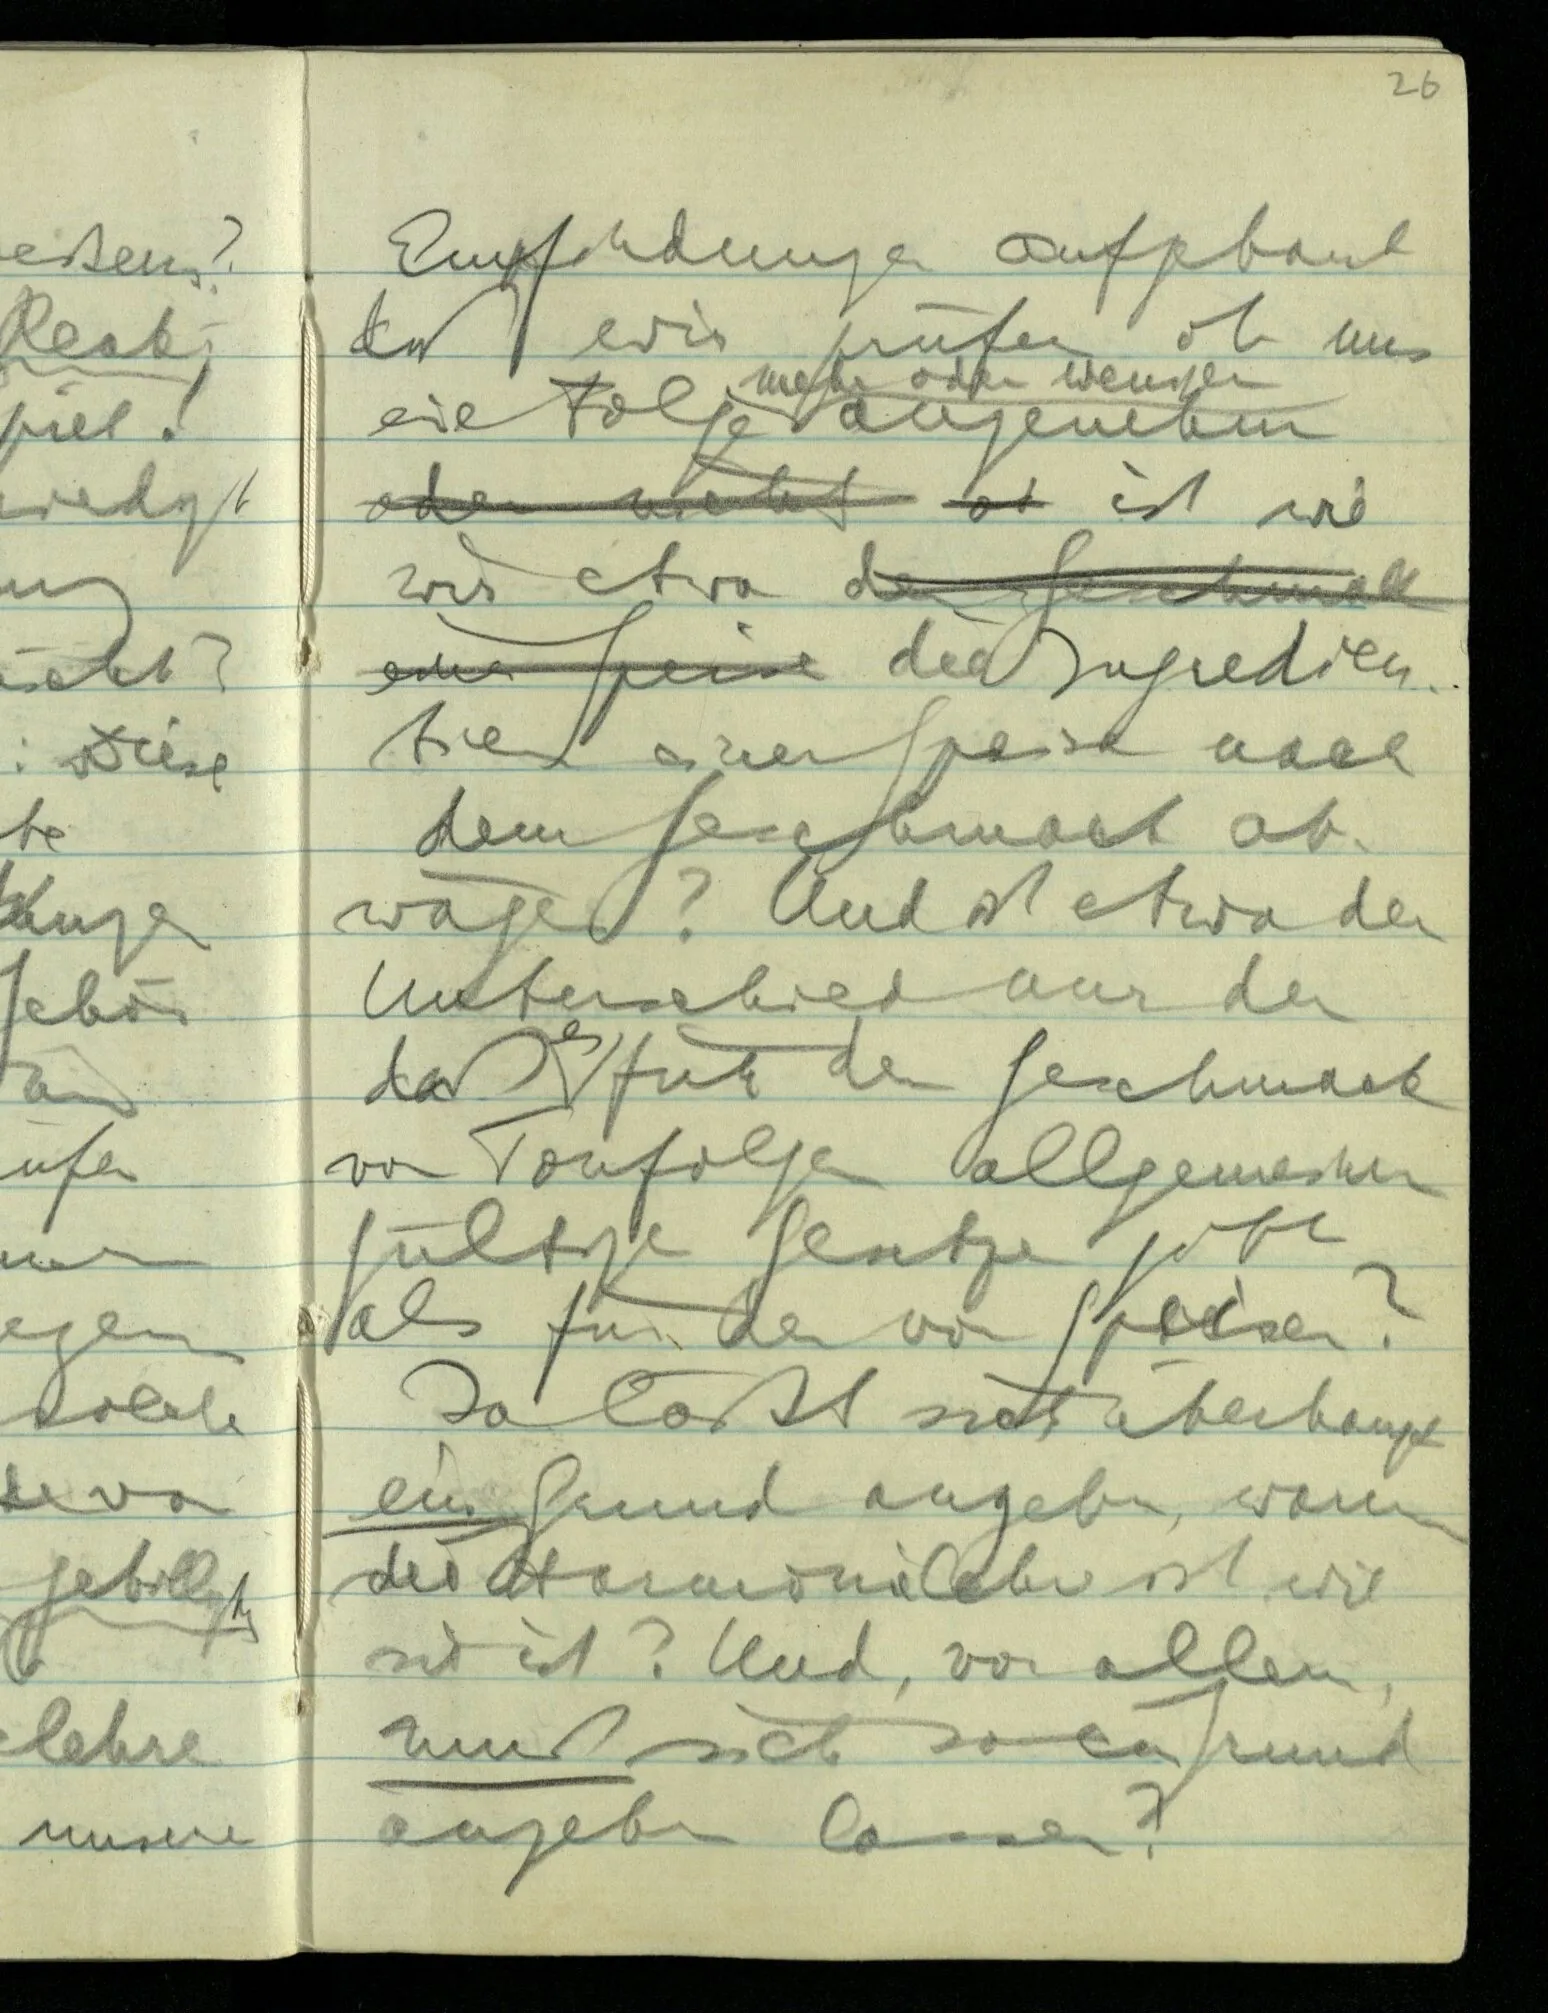 26
eisens?
Reak-
spiel!
iedigt
ung
ischt?
: Diese
te
kunge
Gehör
an
üfen
men
egen
solche
se von
gebilligt
lehre
unsere
Empfindungen aufgebaut
daß wir prüfen ob uns
mehr oder weniger
eine Folge angenehm
oder nicht ob ist wie
wir etwa den Geschmack
einer Speise die Ingredien-
tien einer Speise nach
dem Geschmack ab-
wägen? Und ist etwa der
Unterschied nur der
daß es für den Geschmack
von Tonfolgen allgemeiner
gültige Gesetze gibt
als für den von Speisen?
Ja läßt sich überhaupt
ein Grund angeben, warum
die Harmonielehre ist wie
sie ist? Und, vor allem,
muß sich so ein Grund
angeben lassen?